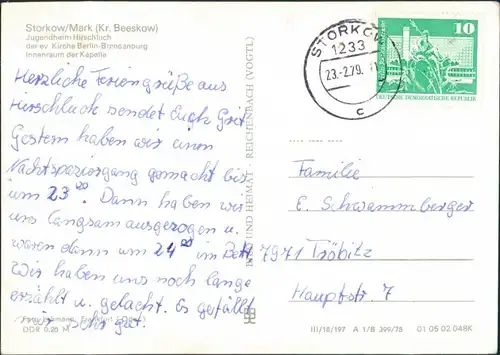 Storkow/Mark (Kr. Beeskow)
Jugendheim Hirschluch
der ev. Kirche Berlin-Brandenburg
Innenraum der Kapelle
Herzliche Feriengrüße aus
Hirschluck sendet Euch Gret
Gestern haben wir einen
Nachtspaziergang gemacht bis
um 23 20. Dann haben wir
uns langsam ausgezogen u.
waren dann um 24 00 im Bett.
Wir haben uns noch lange
erzählt u. gelacht. Es gefällt
mir sehr gut.
Frankfurt (Oder)
DDR 0,25 M
BILD UND HEIMAT · REICHENBACH (VOGTL)
STORKOW
1233
23.-2.79.
c
10
DEUTSCHE DEMOKRATISCHE REPUBLIK
Familie
E. Schwammberger
7971 Tröbitz
Hauptstr. 7
III/18/197 A 1/B 399/75 01 05 02 048K